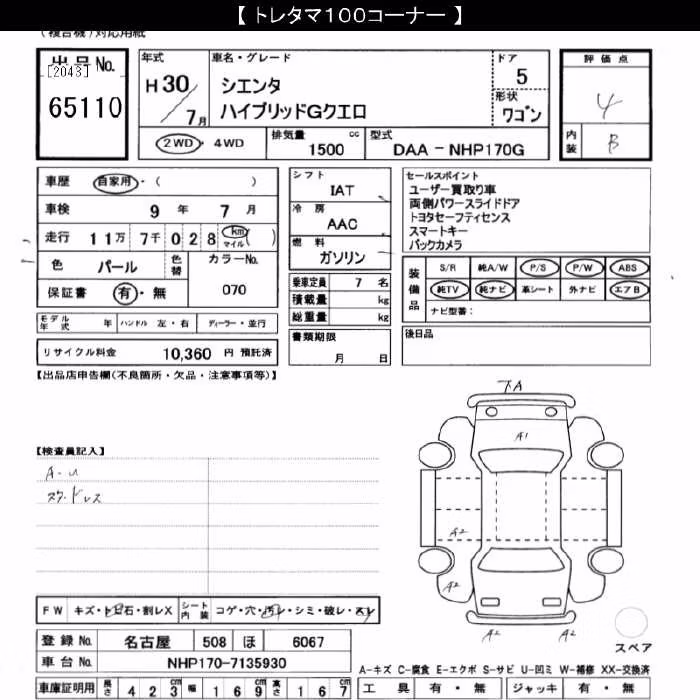 【 トレタマ１００コーナー 】
(複合機)対応用紙
出品No.
[2043]
65110
年式
H30
7月
車名・グレード
シエンタ
ハイブリッドGクエロ
ドア
5
形状
ワゴン
評価点
4
内装
B
2WD・4WD
排気量
1500 cc
型式
DAA－NHP170G
車歴 自家用・( )
車検 9年 7月
走行 11万 7千 028 km マイル ( )
色 パール
色替
カラーNo.
070
保証書 有・無
シフト
IAT
冷房
AAC
燃料
ガソリン
乗車定員 7 名
積載量 kg
総重量 kg
書類期限
月 日
セールスポイント
ユーザー買取り車
両側パワースライドドア
トヨタセーフティセンス
スマートキー
バックカメラ
装備品
S/R 純A/W P/S P/W ABS
純TV 純ナビ 革シート 外ナビ エアB
ナビ型番：
後日品
モデル年式 年 ハンドル 左・右 ディーラー・並行
リサイクル料金 10,360 円 預託済
【出品店申告欄(不良箇所・欠品・注意事項等)】
【検査員記入】
A-U
下A
A1
A2
A2
A2
A2
A2
スペア
FW キズ・トビ石・割レX
シート内装 コゲ・穴・汚レ・シミ・破レ・スレ
登録No. 名古屋 508 ほ 6067
車台No. NHP170-7135930
A-キズ C-腐食 E-エクボ S-サビ U-凹ミ W-補修 XX-交換済
車庫証明用 長さ 423cm 幅 169cm 高さ 167cm
工具 有・無 ジャッキ 有・無